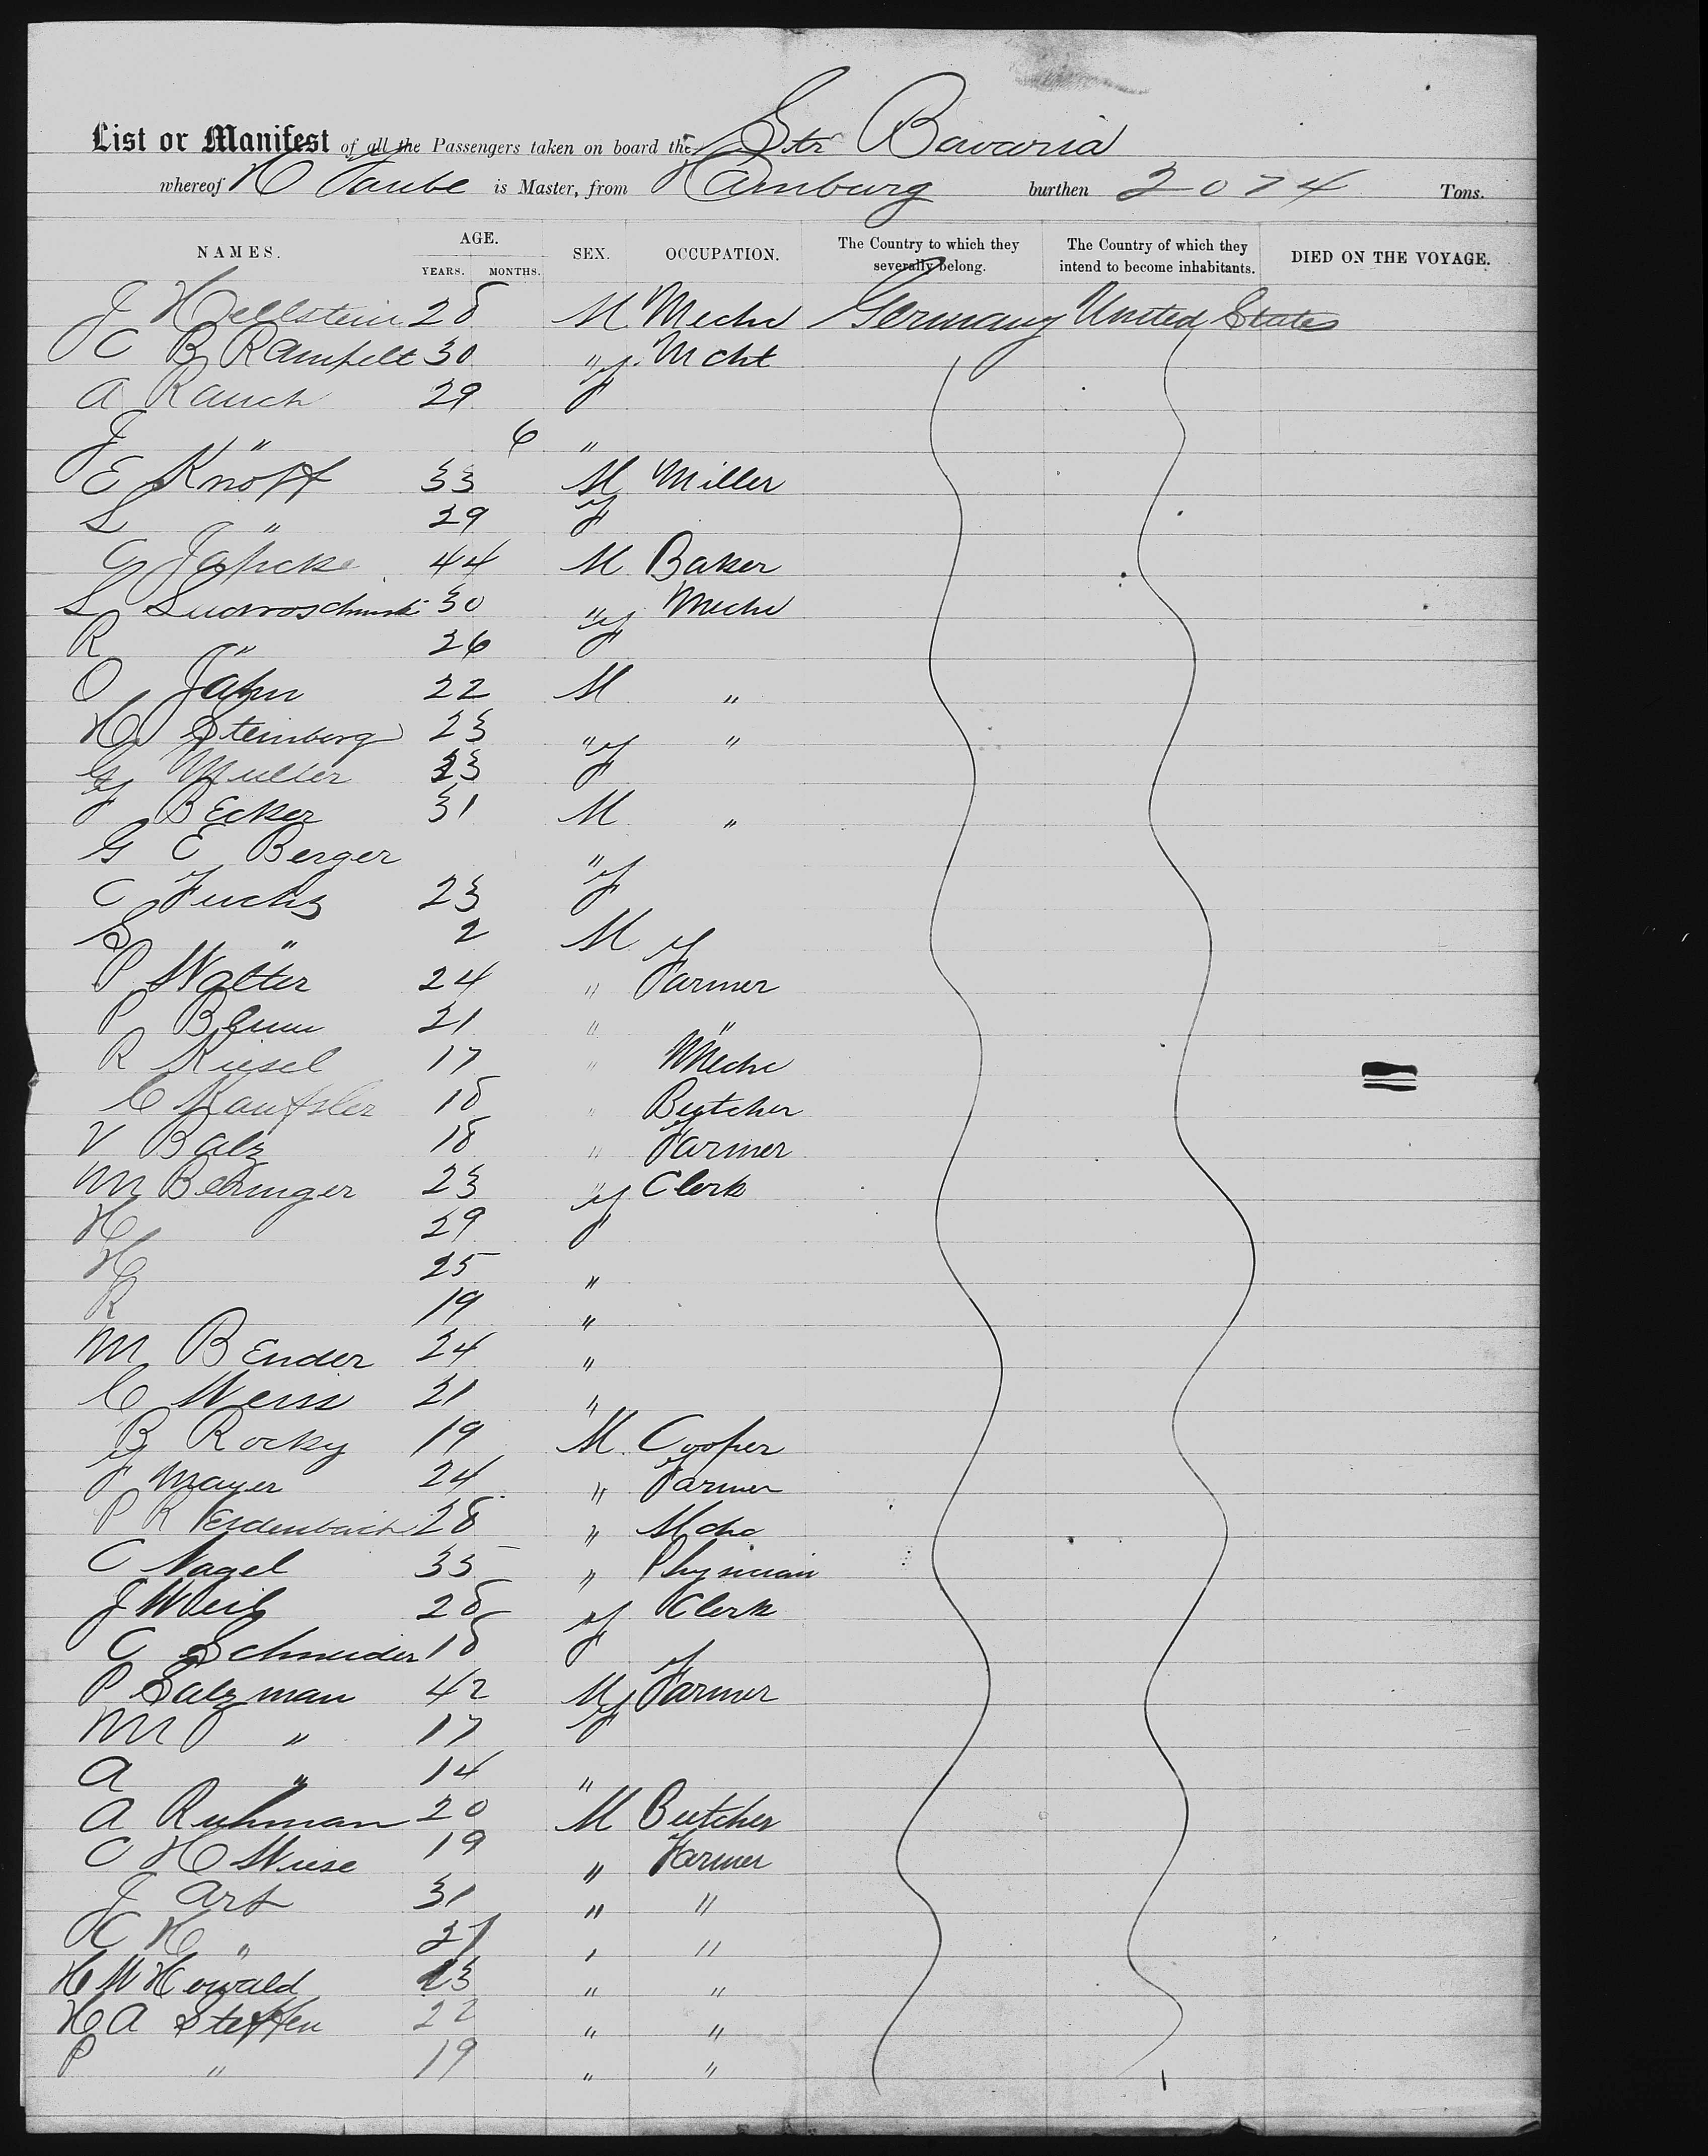 List or Manifest of all the Passengers taken on board the Str Bavaria
whereof H Taube is Master, from Hamburg burthen 2074 Tons.
NAMES. AGE. YEARS. MONTHS. SEX. OCCUPATION. The Country to which they severally belong. The Country of which they intend to become inhabitants. DIED ON THE VOYAGE.
J Hellstein 28 M Mechc Germany United States
C B Rampelt 30 " Mcht
A Rauch 29 F
J " 6 "
E Knopf 33 M Miller
L " 29 F
G 44 M Baker
L 30 " Mechc
R " 26 F
O Jahn 22 M "
H Steinberg 23 " "
G Muller 23 F
F Becker 31 M "
G E Berger "
C Fuchs 23 F
S " 2 M
P Walter 24 " Farmer
P Blum 21 " "
R Kiesel 17 " Mechc
C 18 " Butcher
V Balz 18 " Farmer
M Behringer 23 " Clerk
H 29 F
H 25 "
R 19 "
M Bender 24 "
C Weiss 21 "
B Rocky 19 M Cooper
F Mayer 24 " Farmer
P R 28 "
C Nagel 35 " Physician
J Weil 28 " Clerk
C Schneider 18 F
P Salzman 42 M Farmer
M " 17 F
A " 14 "
A Ruhman 20 M Butcher
C H Wiese 19 " Farmer
J Arp 31 " "
C H " 27 " "
H W Howald 23 " "
H A Steffen 22 " "
P " 19 " "